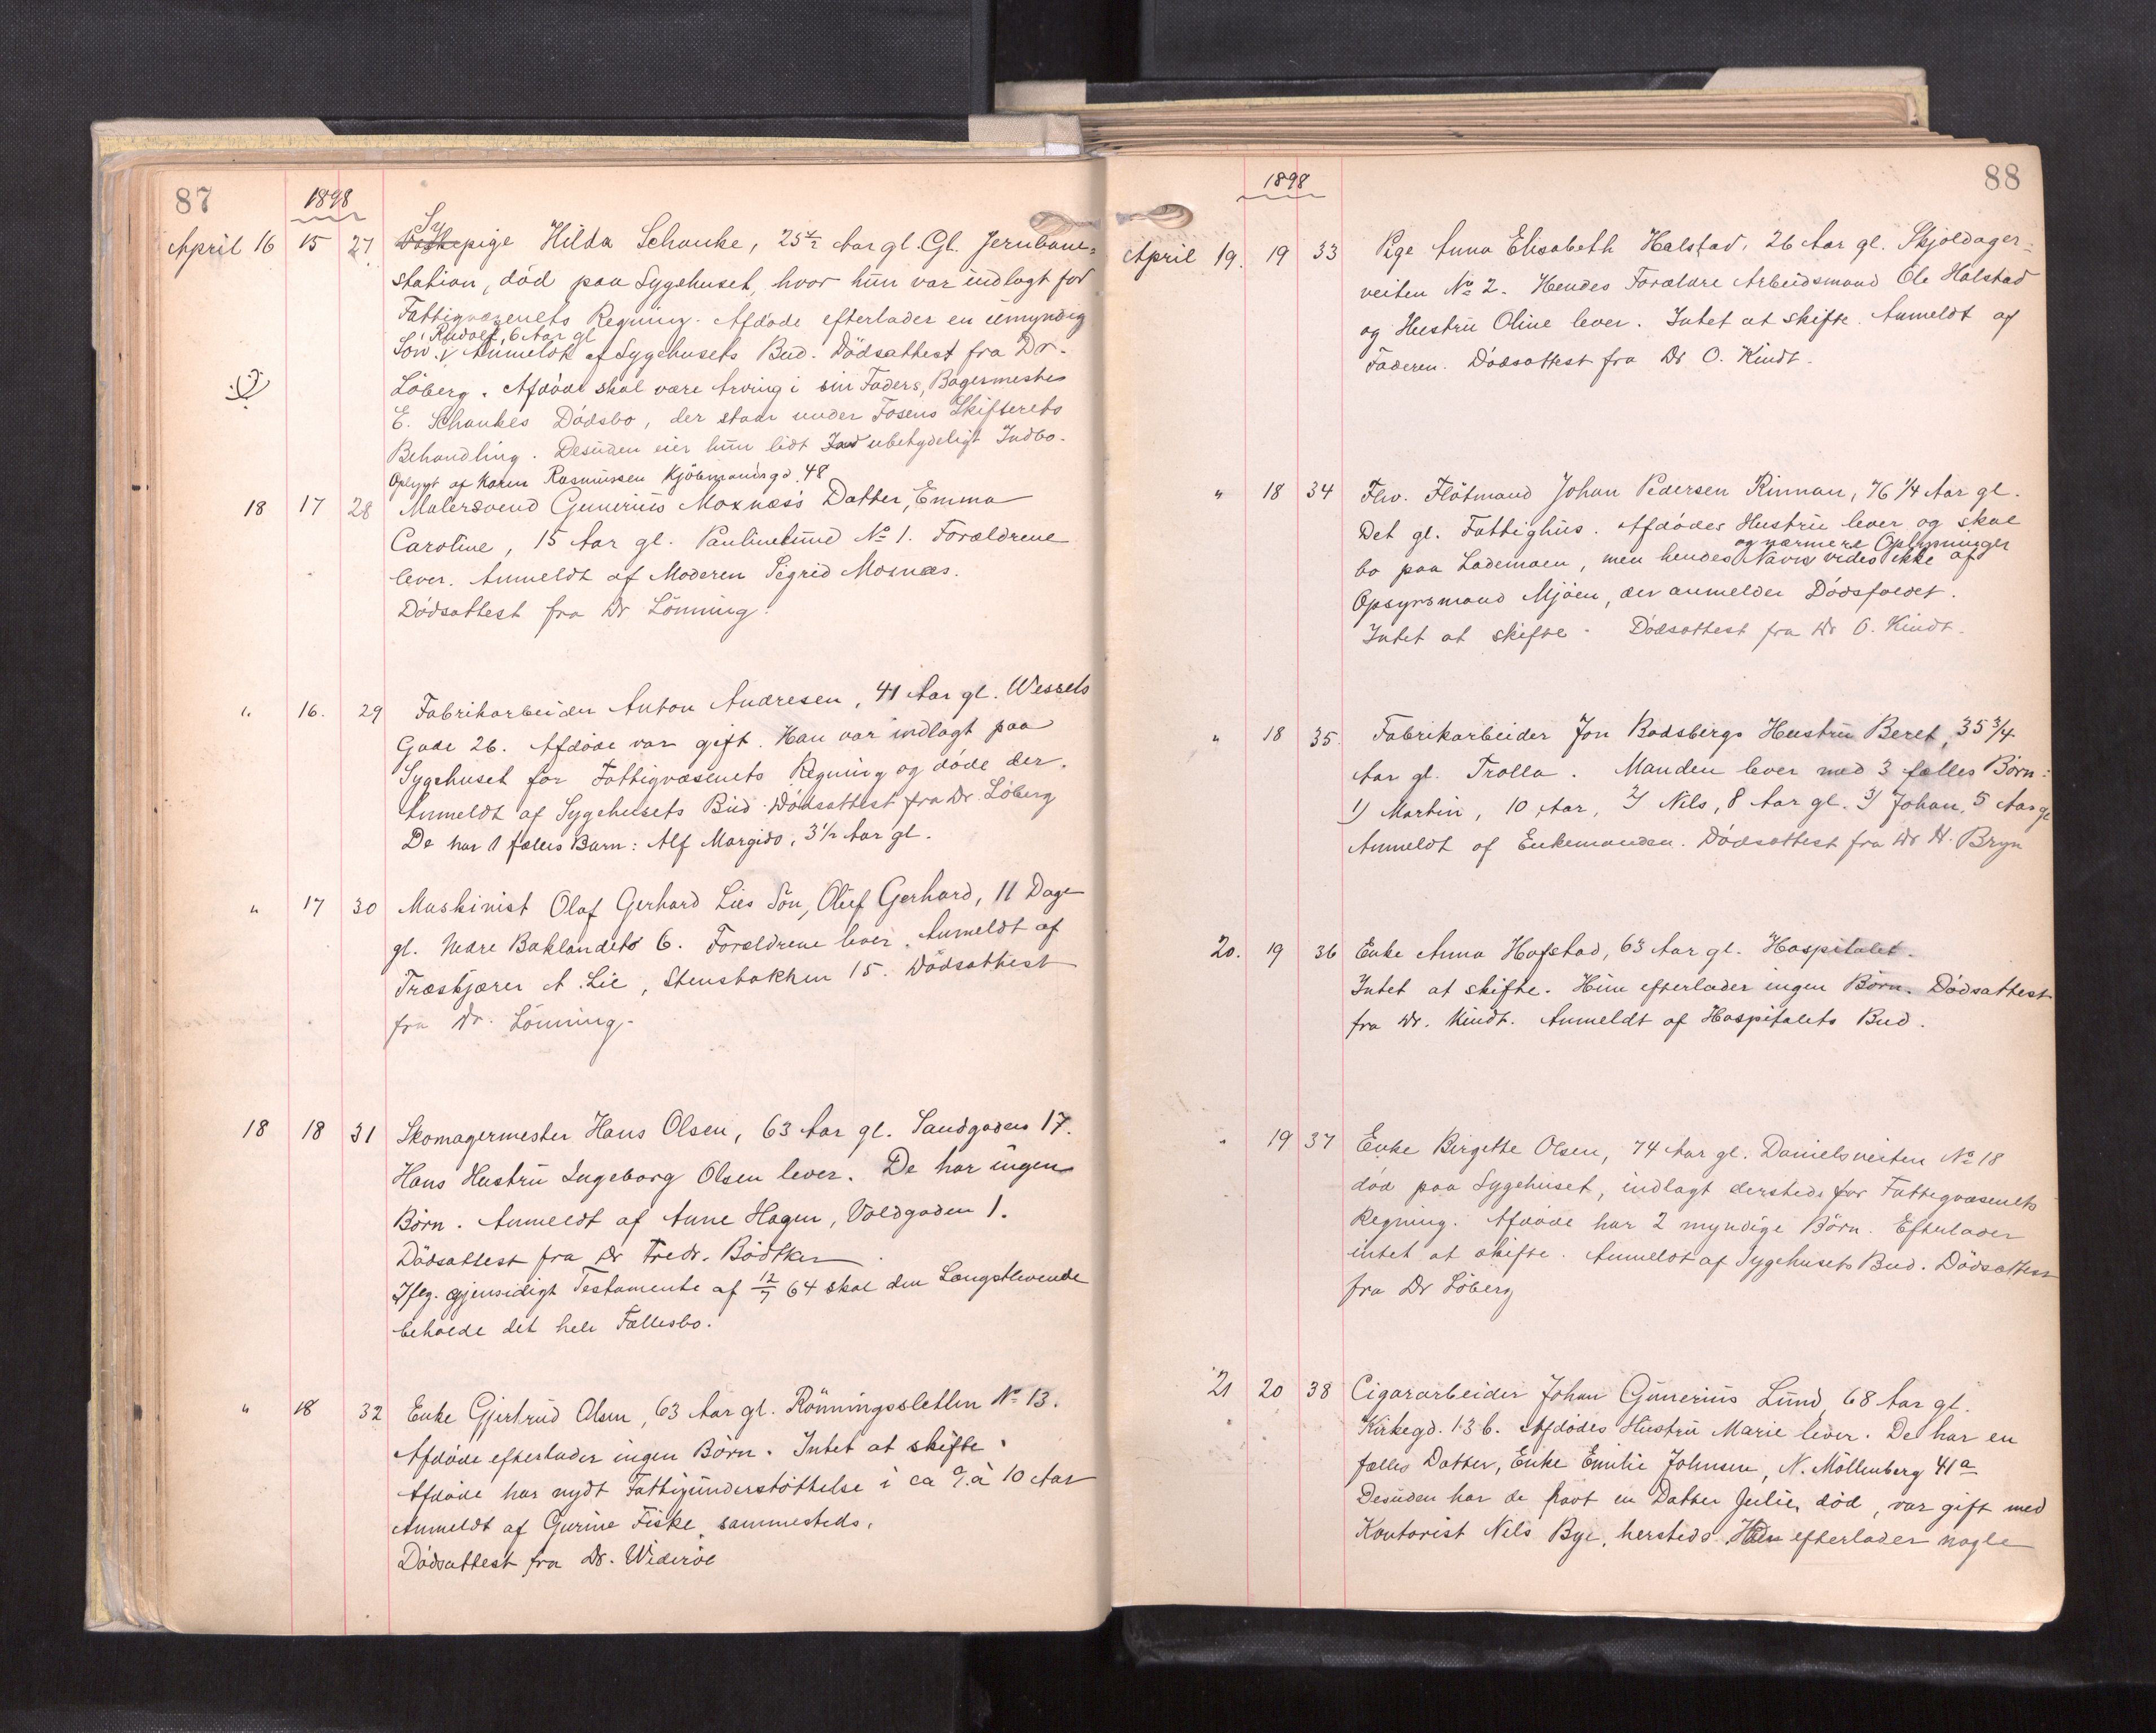 87
1898
April 16 15 27. Sypige Hilda Schanke, 25 1/2 Aar gl. Gl. Jernbane-
station, død paa Sygehuset, hvor hun var indlagt for
Fattigvæsenets Regning. Afdøde efterlader en umyndig
Søn. Anmeldt af Sygehusets Bud. Dödsattest fra Dr.
Rudolf, 6 Aar gl
Löberg. Afdøde skal være Arving i sin Faders, Bagermester
E. Schankes Dödsbo, der staar under Fosens Skifterets
Behandling. Desuden eier hun lidt ubetydeligt Indbo.
Oplyst af Karen Rasmussen Kjöbmandsgd. 48
18 17 28 Malersvend Gunerius Moxness Datter, Emma
Caroline, 15 Aar gl. Paulinelund No 1. Forældrene
lever. Anmeldt af Moderen Sigrid Moxnæs.
Dödsattest fra Dr Lönning.
" 16. 29 Fabrikarbeider Anton Andresen, 41 Aar gl. Wessels
Gade 26. Afdøde var gift. Han var indlagt paa
Sygehuset for Fattigvæsenets Regning og døde der.
Anmeldt af Sygehusets Bud. Dödsattest fra Dr. Löberg
De har 1 fælles Barn: Alf Margido, 3 1/2 Aar gl.
" 17 30 Maskinist Olaf Gerhard Lies Sön, Oluf Gerhard, 11 Dage
gl. Nedre Baklandets 6. Forældrene lever. Anmeldt af
Træskjærer A. Lie, Stensbakken 15. Dödsattest
fra Dr. Lönning.
18 18 31 Skomagermester Hans Olsen, 63 Aar gl. Sandgaden 17.
Hans Hustru Ingeborg Olsen lever. De har ingen
Börn. Anmeldt af Anne Hagen, Voldgaden 1.
Dödsattest fra Dr Fredr. Bödtker
Iflg. gjensidigt Testamente af 12/7 64 skal den Længstlevende
beholde det hele Fællesbo.
" 18 32 Enke Gjertrud Olsen, 63 Aar gl. Rönningsletten No 13.
Afdøde efterlader ingen Börn. Intet at skifte.
Afdøde har nydt Fattigunderstöttelse i ca 9 à 10 Aar
Anmeldt af Gurine Fiske, sammesteds.
Dödsattest fra Dr. Wideröe
88
1898
April 19. 19 33 Pige Anna Elisabeth Halstad, 26 Aar gl. Skjöldager-
veiten No 2. Hendes Forældre Arbeidsmand Ole Halstad
og Hustru Oline lever. Intet at skifte. Anmeldt af
Faderen. Dödsattest fra Dr O. Kindt.
" 18 34 Fhv. Flötmand Johan Pedersen Rinnan, 76 1/4 Aar gl.
Det gl. Fattighus. Afdødes Hustru lever og skal
og nærmere Oplysninger
bo paa Lademoen, men hendes Navn vides ikke af
Opsynsmand Mjöen, der anmelder Dödsfaldet.
Intet at skifte. Dödsattest fra Dr O. Kindt.
" 18 35. Fabrikarbeider Jon Bodsbergs Hustru Beret, 35 3/4
Aar gl. Trolla. Manden lever med 3 fælles Börn:
1) Martin, 10 Aar, 2) Nils, 8 Aar gl. 3) Johan, 5 Aar gl
Anmeldt af Enkemanden. Dödsattest fra Dr H. Bryn
20. 19 36 Enke Anna Hofstad, 63 Aar gl. Hospitalet.
Intet at skifte. Hun efterlader ingen Börn. Dödsattest
fra Dr. Kindt. Anmeldt af Hospitalets Bud.
" 19 37 Enke Birgitte Olsen, 74 Aar gl. Danielsveiten No 18
død paa Sygehuset, indlagt dersteds for Fattigvæsenets
Regning. Afdøde har 2 myndige Börn. Efterlader
intet at skifte. Anmeldt af Sygehusets Bud. Dödsattest
fra Dr Löberg
21 20 38 Cigararbeider Johan Gunerius Lund, 68 Aar gl.
Kirkegd. 13 b. Afdødes Hustru Marie lever. De har en
fælles Datter, Enke Emilie Johnsen, N. Möllenberg 41a
Desuden har de havt en Datter Julie, død, var gift med
Kontorist Nils Bye, hersteds. Hun efterlader nogle